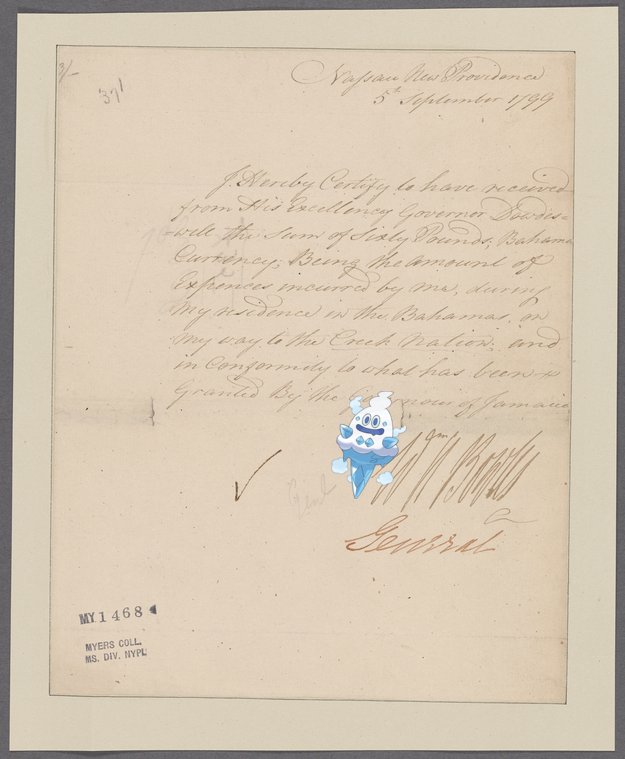 3/-
371
Nassau New Providence
5th September 1799
I Hereby Certify to have received
from His Excellency Governor Dowdes=
-well the Sum of Sixty Pounds, Bahama
Currency; Being the Amount of
Expences incurred by me, during
My residence in the Bahamas, on
my way to the Creek Nation. and
in Conformity to what has been
Granted By the of Jamaica
Wm A Bowles
General
MY1468
MYERS COLL.
MS. DIV. NYPL